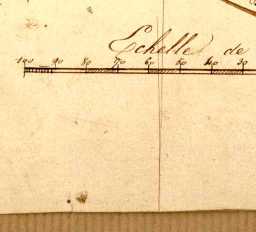 Echelles de
100 90 80 70 60 50 40 30